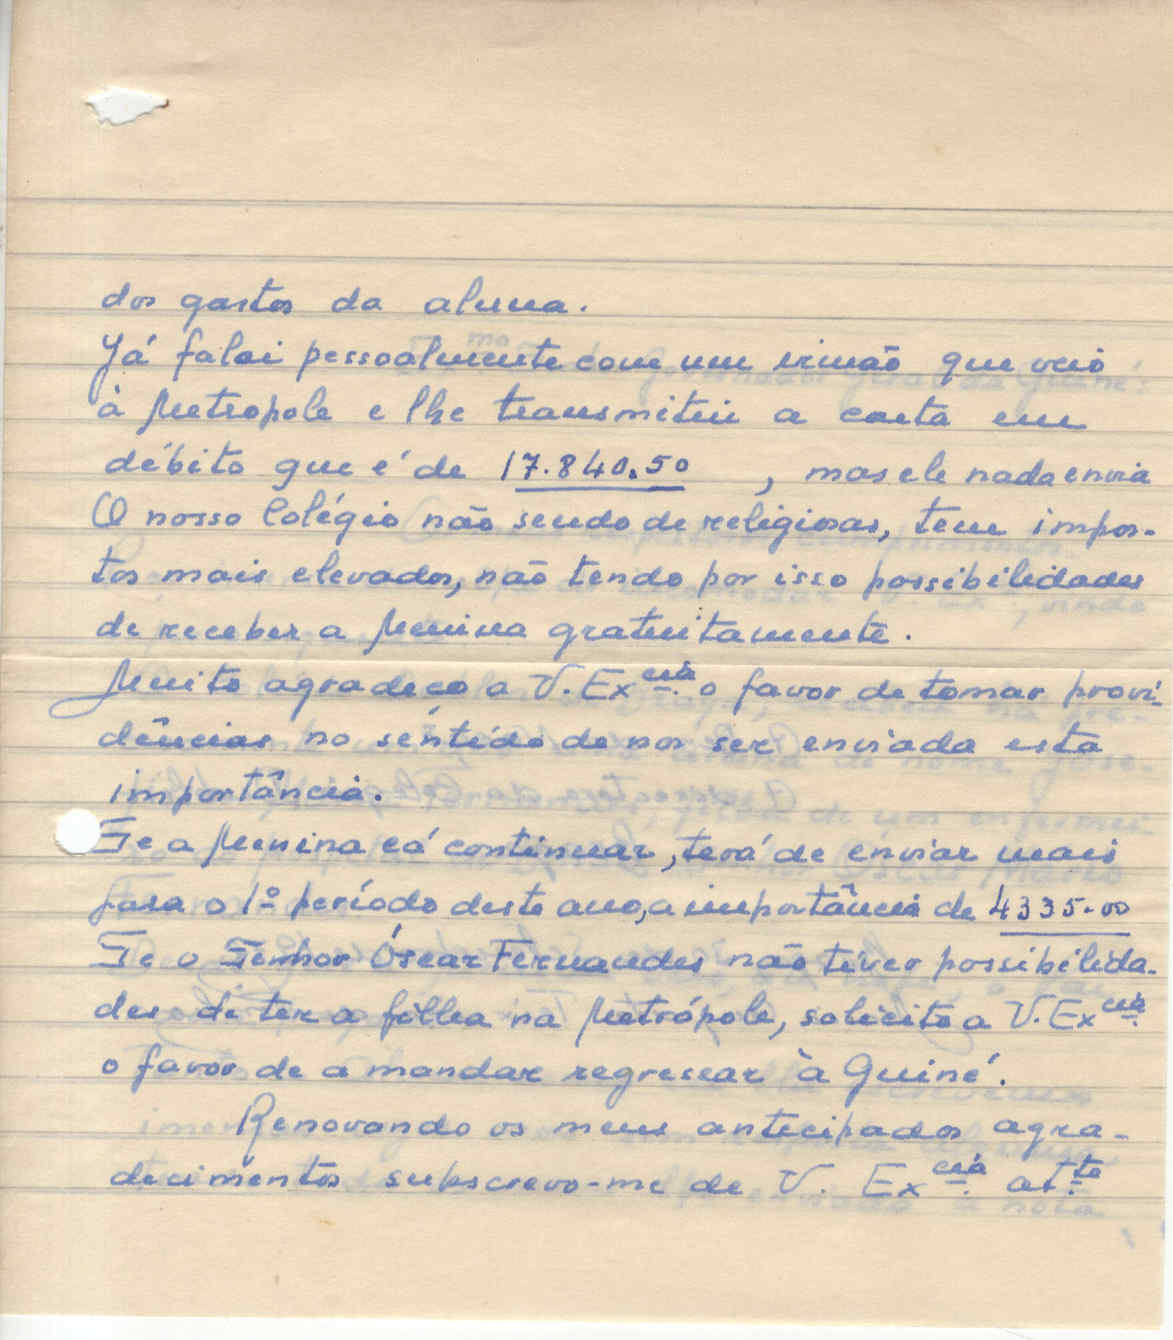 dos gastos da aluna.
Já falei pessoalmente com um irmão que veio
à Metropole e lhe transmitiu a conta em
débito que é de 17.840.50, mas ele nada envia
O nosso Colégio não sendo de religiosas, tem impos-
tos mais elevados, não tendo por isso possibilidades
de receber a Menina gratuitamente.
Muito agradeço a V. Exciª. o favor de tomar provi-
dências no sentido de nos ser enviada esta
importância.
Se a Menina cá continuar, terá de enviar mais
para o 1º período deste ano, a importância de 4335.00
Se o Senhor Óscar Fernandes não tiver possibilida-
des de ter a filha na Metrópole, solicito a V. Exciª.
o favor de a mandar regressar à Guiné.
Renovando os meus antecipados agra-
decimentos subscrevo-me de V. Exciª. at.te